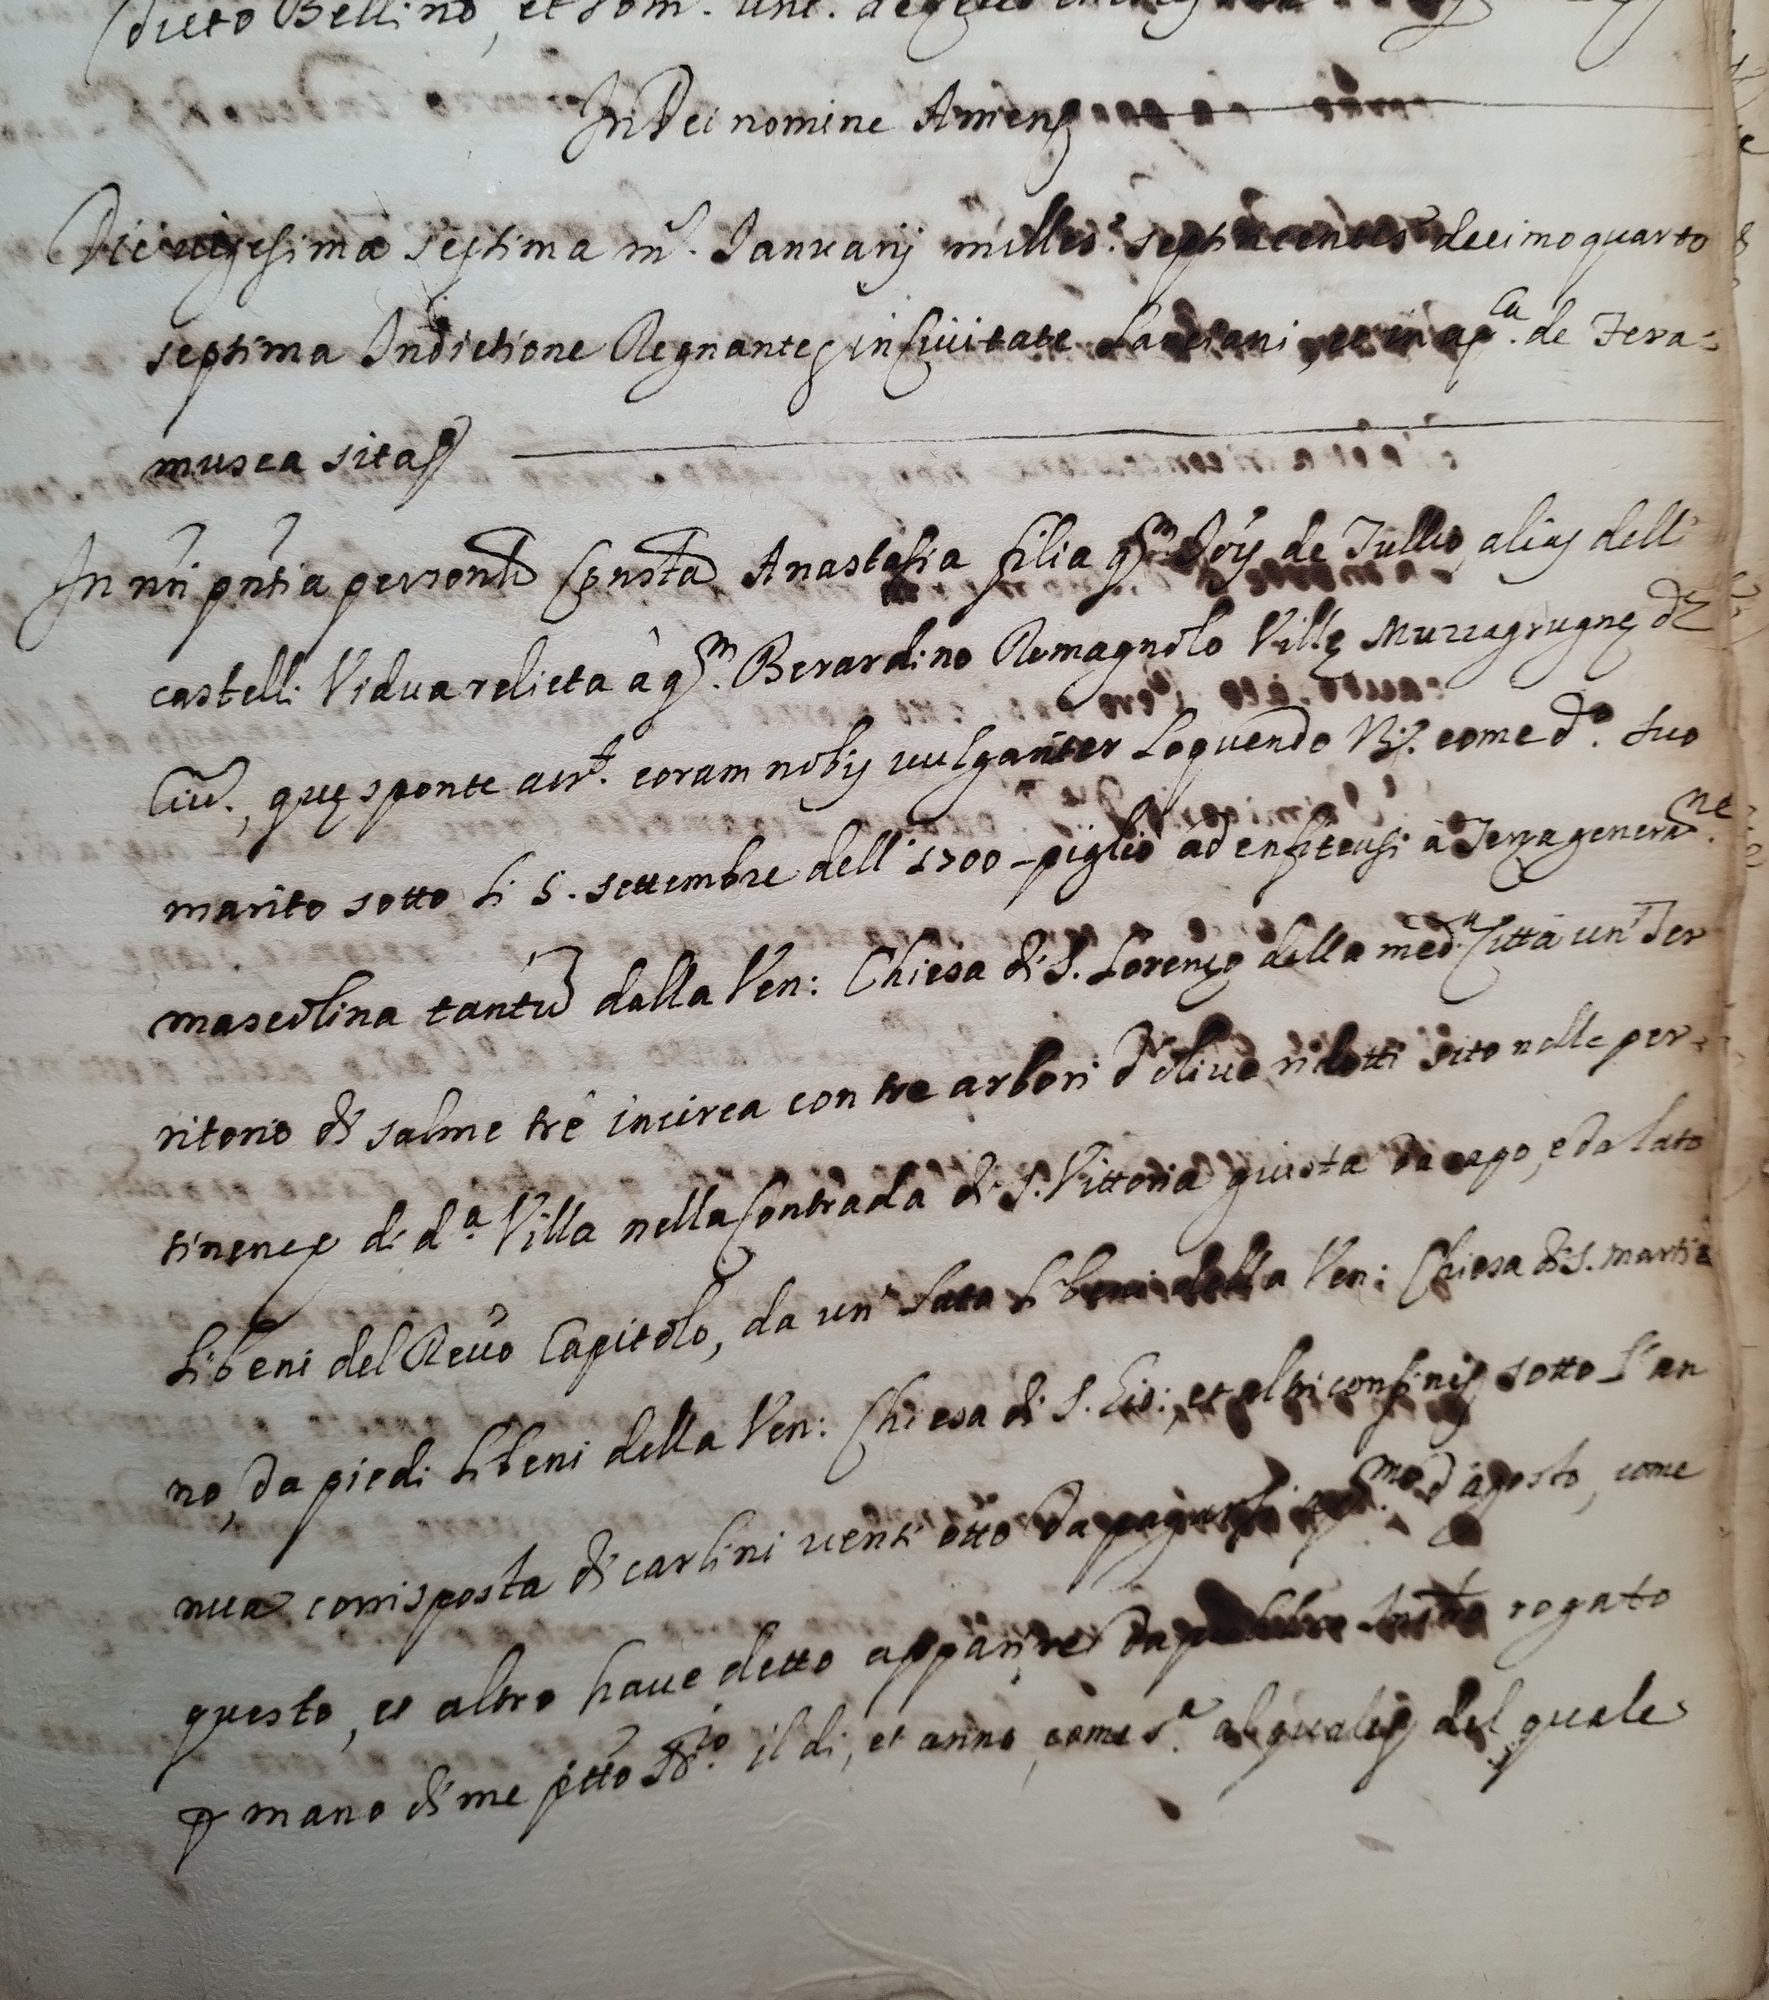 dicto Bellino, et Dom. ant. de
In Dei nomine Amen
Die vigesima septima m. Januarij milles.° septincentes.° decimoquarto
septima Indictione Regnante in Civitate Lanciani, et in ap.ca de Fera=
musca sita
In nri pntia personlr constta Anastasia filia qm Jois de Tullio alias delli
castelli Vidua relicta à qm. Berardino Romagnolo Villę Muzzagrugnę d.
Civ., quę sponte asr.t coram nobis vulgariter loquendo Vz. come d.° suo
marito sotto li 5. settembre dell' 1700 - pigliò ad enfiteusi à Terza genera.ne
mascolina tantu dalla Ven: Chiesa di S. Lorenzo della med.a Città un' Ter
ritorio di salme trè incirca con tre arbori d'olive ridotti sito nelle per=
tinenze di d.a Villa nella Contrada di S. Vittoria giusta da capo, e da lato
li beni del Revdo Capitolo, da un' lato li beni della Ven: Chiesa di S. Marti=
no, da piedi li beni della Ven: Chiesa di S. Gio:, et altri confini sotto l'an
nua corrisposta di carlini venti otto da pagarsi d'agosto, come
questo, et altro have detto apparire da rogato
p mano di me ptto il di, et anno, come s.a al quale del quale